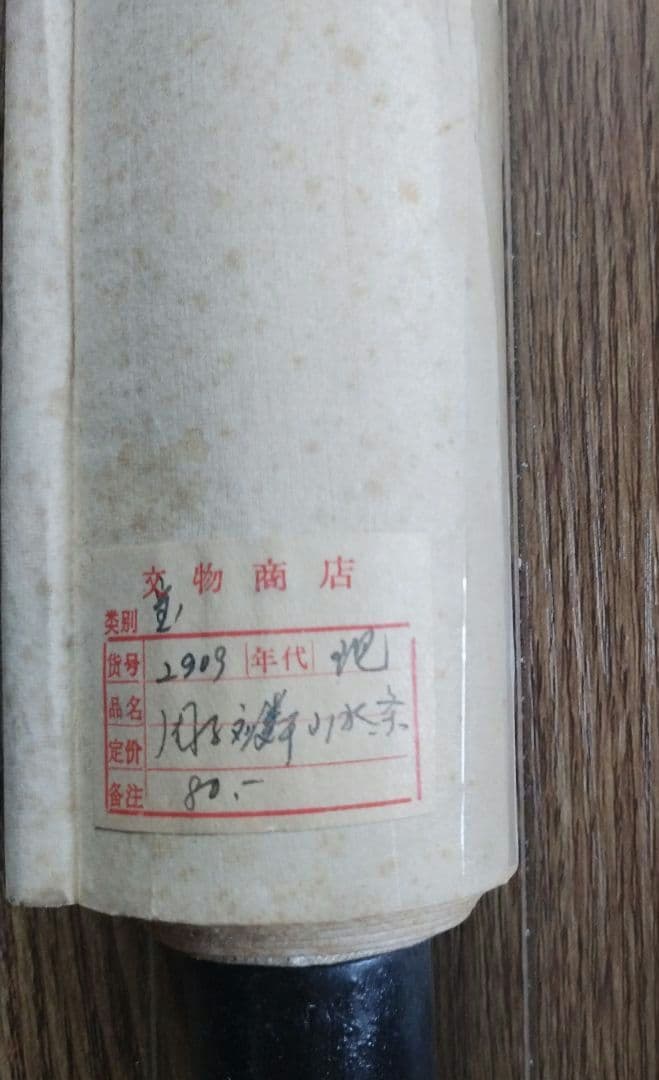 文物商店
类别
货号 2909 年代 现
品名
定价 山水条
备注 80.-